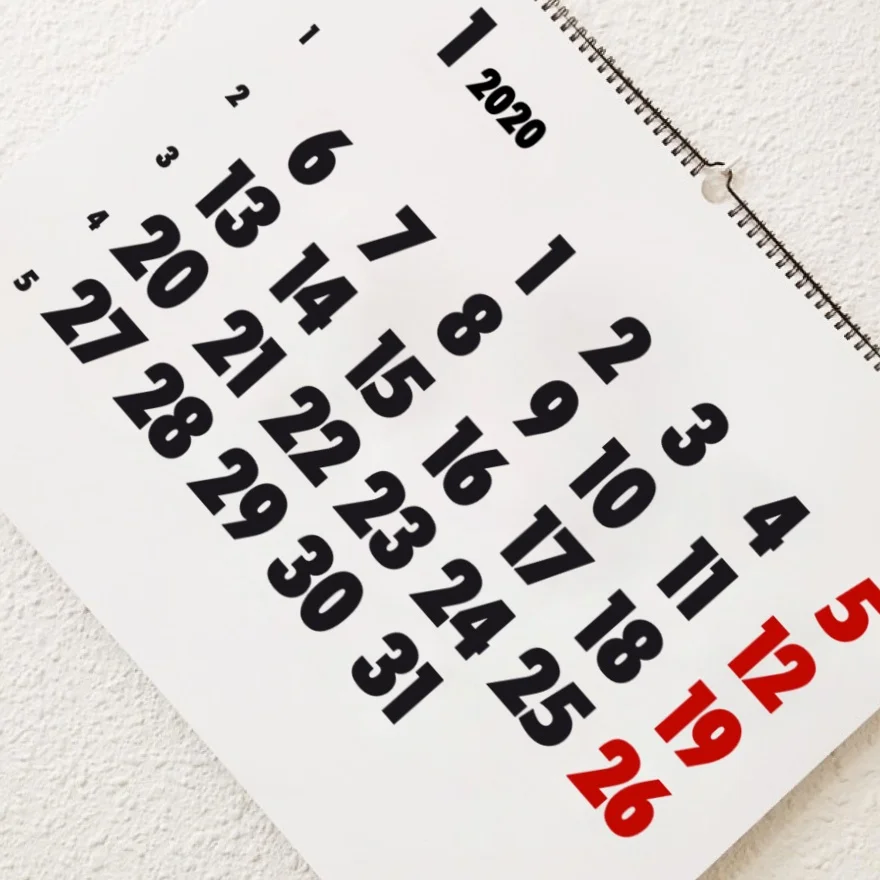 1 2020
1 1 2 3 4 5
2 6 7 8 9 10 11 12
3 13 14 15 16 17 18 19
4 20 21 22 23 24 25 26
5 27 28 29 30 31